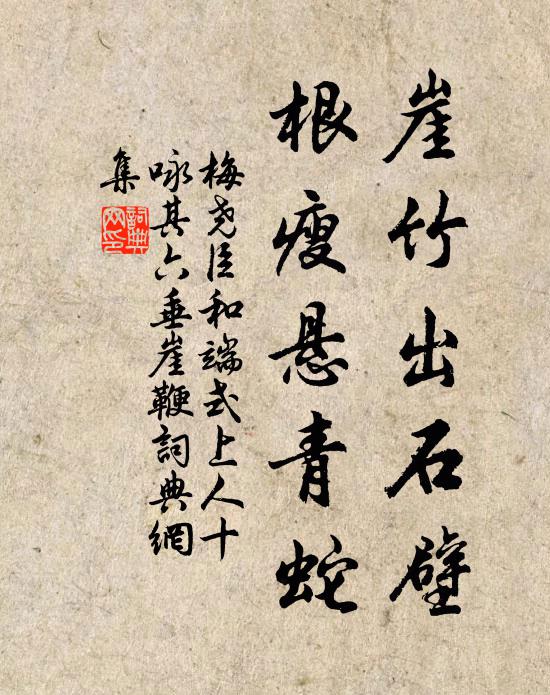 崖竹出石壁
根瘦悬青蛇
梅尧臣和端式上人十
咏其六垂崖鞭詞典網
集
詞典網印